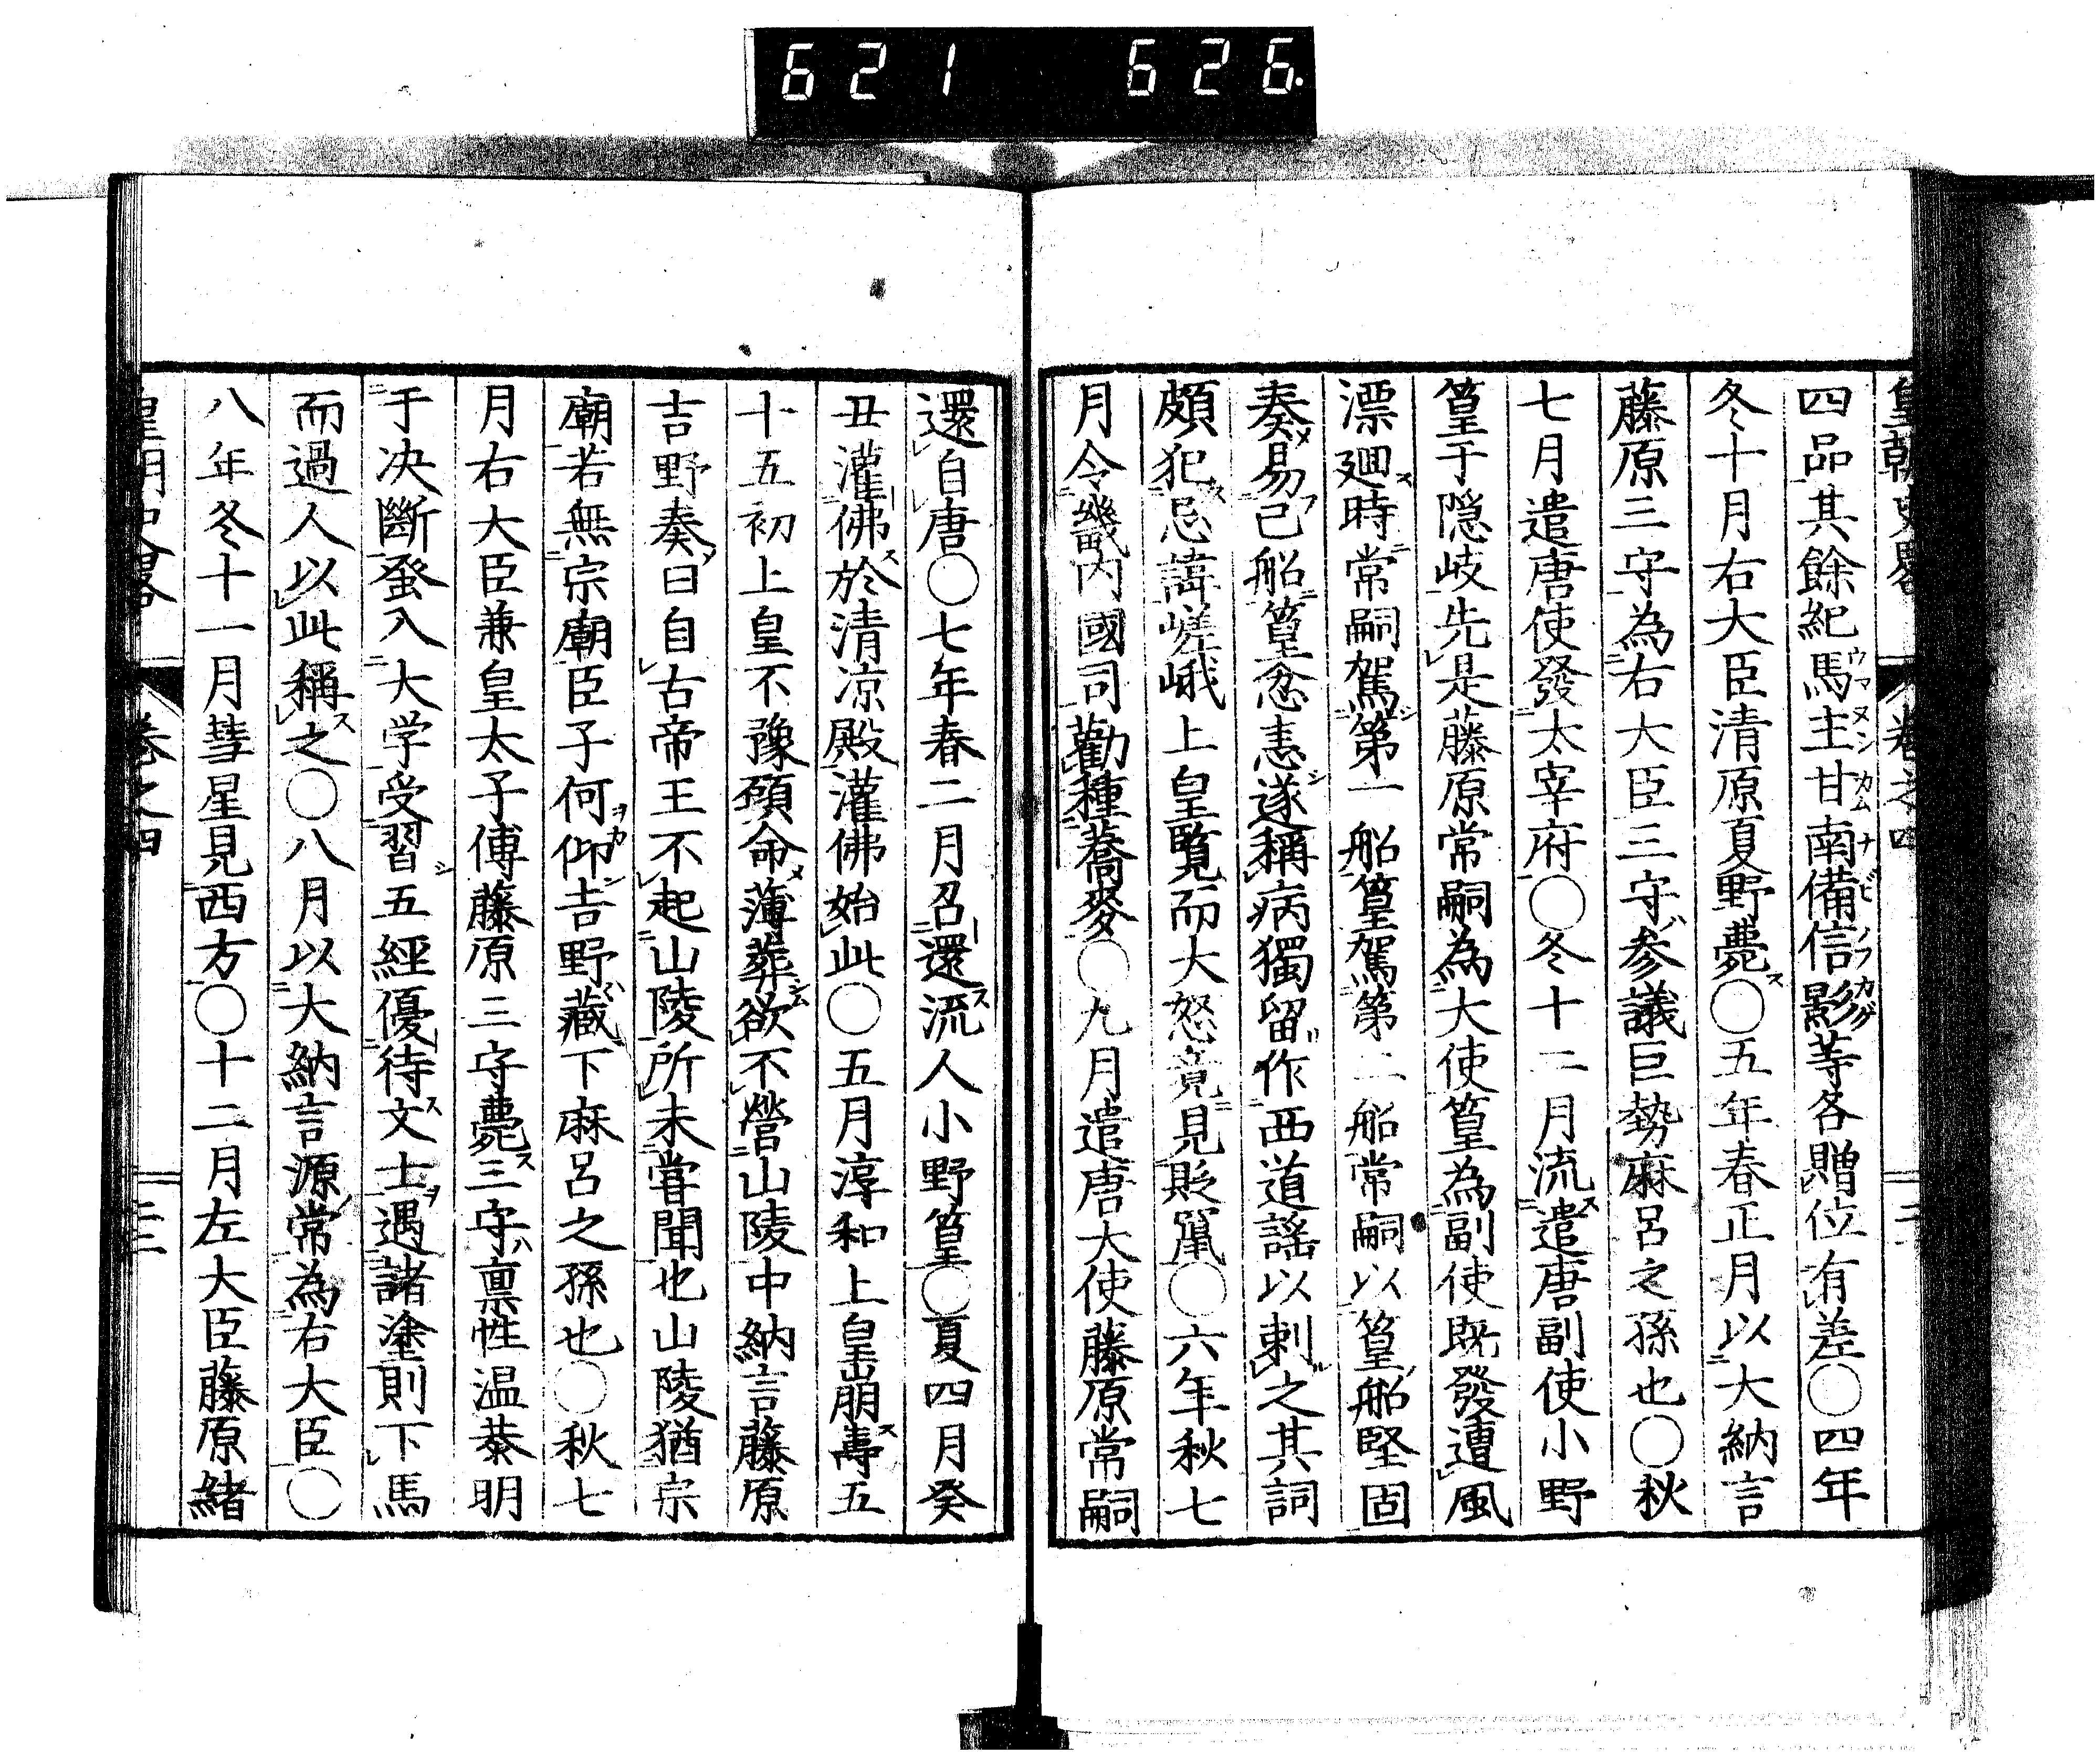 621 626
皇朝史畧 卷之四 二
四品其餘紀馬主甘南備信影等各贈位有差〇四年
冬十月右大臣清原夏野薨〇五年春正月以大納言
藤原三守為右大臣三守参議巨勢麻呂之孫也〇秋
七月遣唐使發太宰府〇冬十二月流遣唐副使小野
篁于隠岐先是藤原常嗣為大使篁為副使既發遭風
漂廻時常嗣駕第一船篁駕第二船常嗣以篁船堅固
奏易己船篁忿恚遂稱病獨留作西道謡以刺之其詞
頗犯忌諱嵯峨上皇覽而大怒竟見貶竄〇六年秋七
月令畿内國司勸種蕎麥〇九月遣唐大使藤原常嗣
還自唐〇七年春二月召還流人小野篁〇夏四月癸
丑灌佛於清凉殿灌佛始此〇五月淳和上皇崩壽五
十五初上皇不豫頋命薄葬欲不營山陵中納言藤原
吉野奏曰自古帝王不起山陵所未甞聞也山陵猶宗
廟若無宗廟臣子何仰吉野藏下麻呂之孫也〇秋七
月右大臣兼皇太子傅藤原三守薨三守禀性温恭明
于决斷發入大学受習五經優待文士遇諸塗則下馬
而過人以此稱之〇八月以大納言源常為右大臣〇
八年冬十一月彗星見西方〇十二月左大臣藤原緒
皇朝史畧 卷之四 三